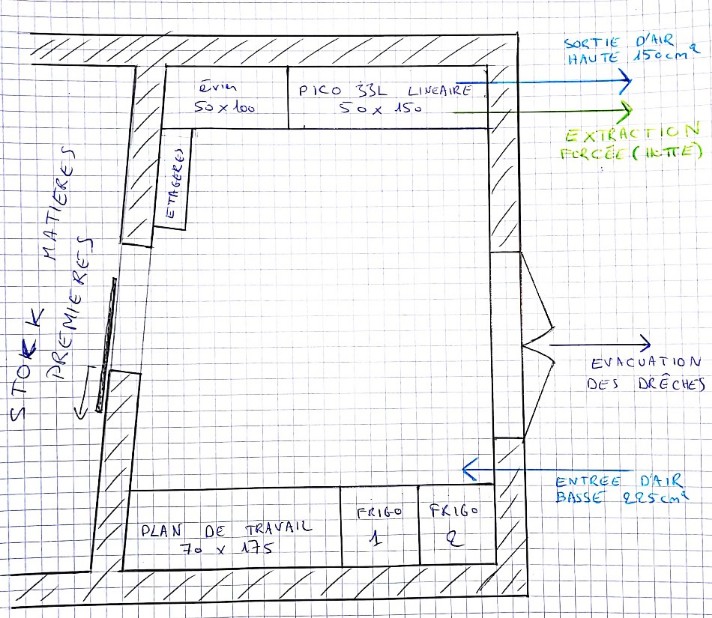 SORTIE D'AIR
HAUTE 150cm²
évier
50 x 100
PICO 33L LINEAIRE
50 x 150
EXTRACTION
FORCÉE (HOTTE)
ETAGERES
STOCK MATIERES
PREMIERES
EVACUATION
DES DRÊCHES
ENTREE D'AIR
BASSE 225cm²
PLAN DE TRAVAIL
70 x 175
FRIGO
1
FRIGO
2